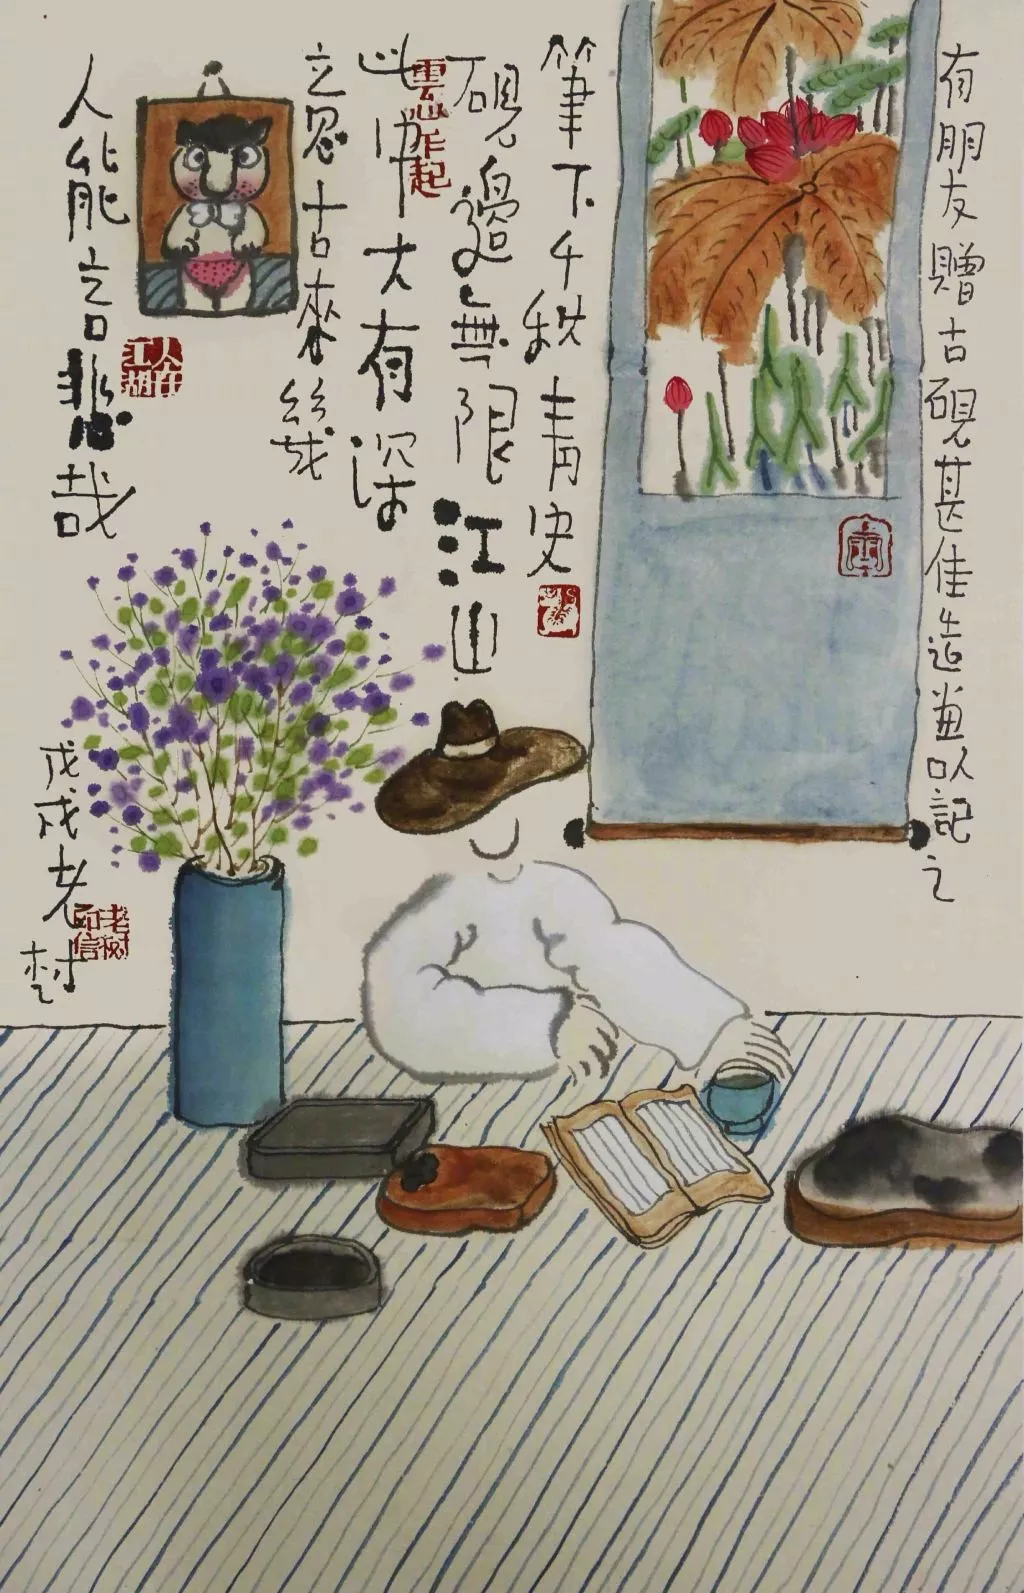 有朋友贈古硯甚佳造畫以記之
筆下千秋青史
硯邊無限江山
此中大有深
意古來幾
人能言悲哉
人在江湖
戊戌老
老树印信